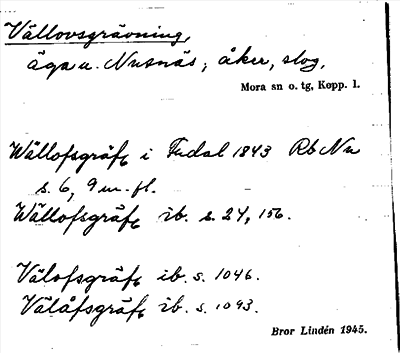 Vällovsgrävning,
äga u. Nusnäs; åker, slog.
Mora sn o. tg, Kopp. l.
Wällofsgräfg i Fudal 1843 Rb Nu
s. 6, 9 m. fl.
Wällofsgräfg ib. s. 24, 156.
Välofsgräfg ib. s. 1046.
Välåfsgräfg ib. s. 1093.
Bror Lindén 1945.